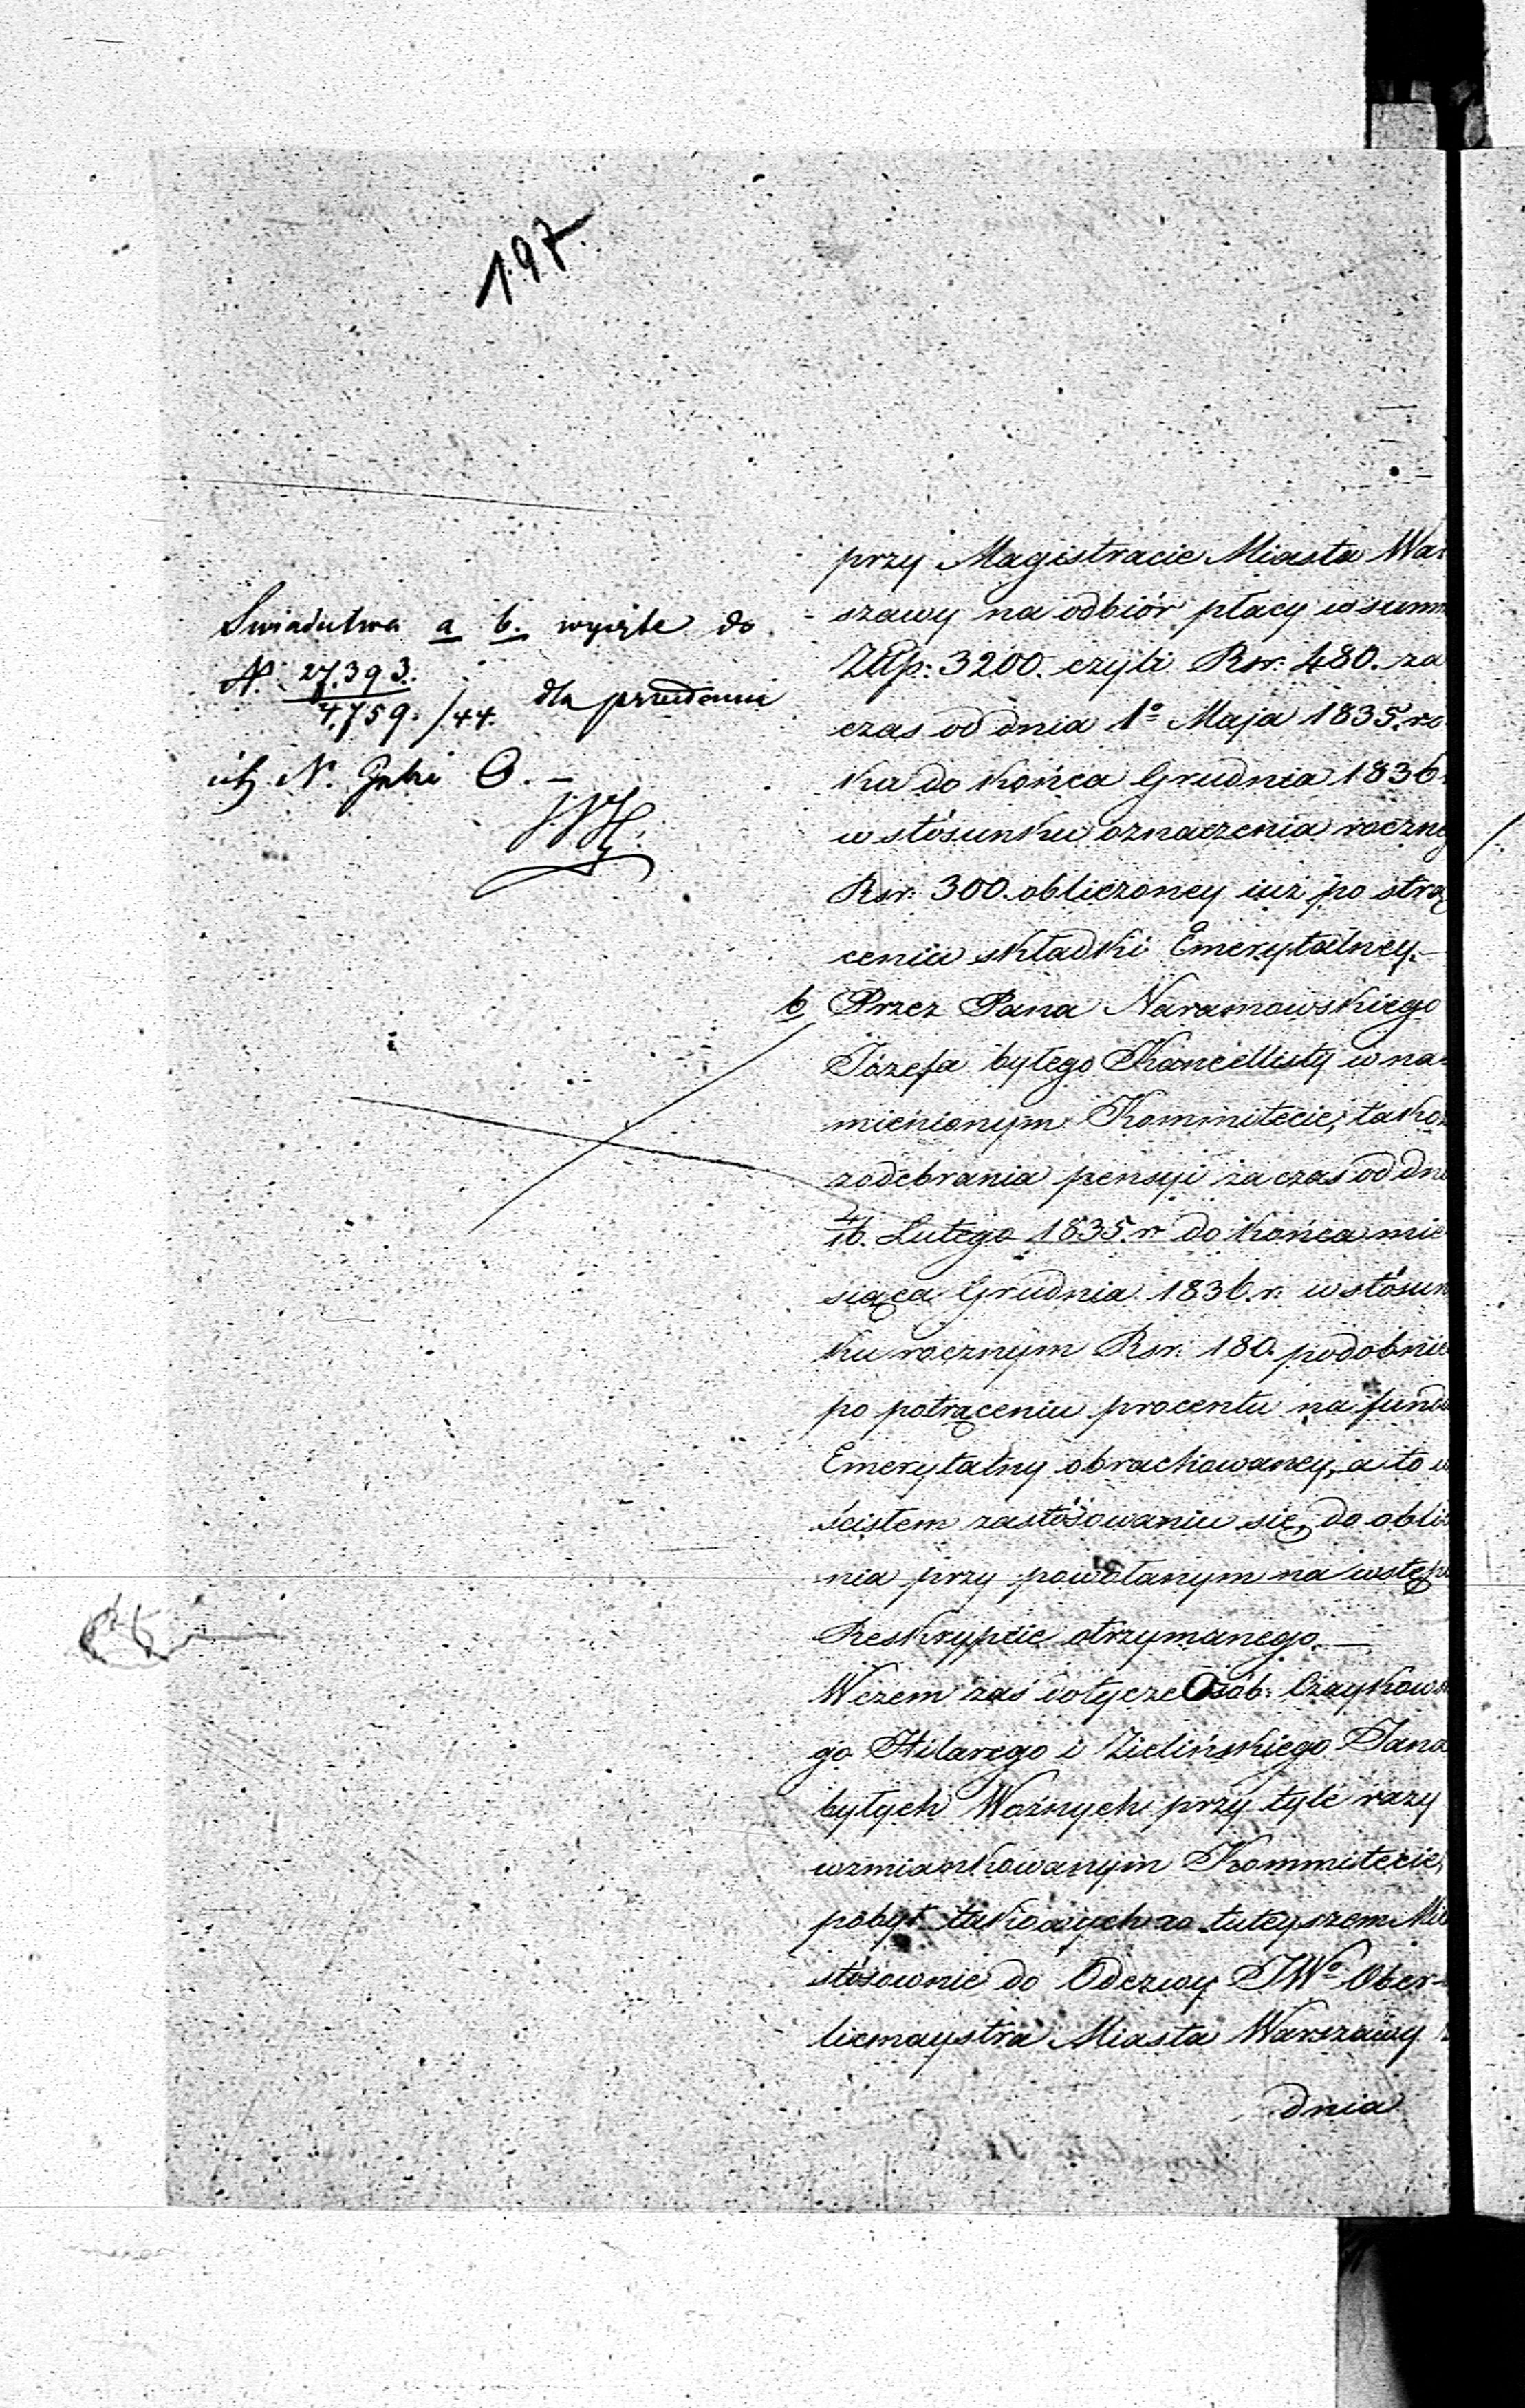 197.
Swiadectwa a b. wyięte do
N. 27.393.
4.759. /44. dla
N. J.
przy Magistracie Miasta War
szawy na odbiór płacy w summ
Złłp: 3200. czyli Rsr: 480. za
czas od dnia 1º Maja 1835. ro
ku do końca Grudnia 1836
w stósunku oznaczenia roczne
Rsr: 300. obliczoney iuż po strą
ceniu składki Emerytalney.—
b Przez Pana Naramowskiego
Józefa byłego Kancellisty w na-
mienionym Kommitecie, takoż
z odebrania pensyi za czas od dni
4/16. Lutego 1835. r do końca mie
siąca Grudnia 1836. r. w stósun
ku rocznym Rsr: 180. podobnie
po potrąceniu procentu na fund
Emerytalny obrachowaney, a to w
ścisłem zastósowaniu się do oblic
nia przy powołanym na wstęp
Reskrypcie otrzymanego.—
W czem zaś dotycze Osób: Czaykows
go Hilarego i Zielińskiego Jana
byłych Woźnych przy tyle razy
wzmiankowanym Kommitecie,
pobyt takowych w tuteyszem Mie
stósownie do Odezwy JWº Ober-
licmaystra Miasta Warszawy
dnia